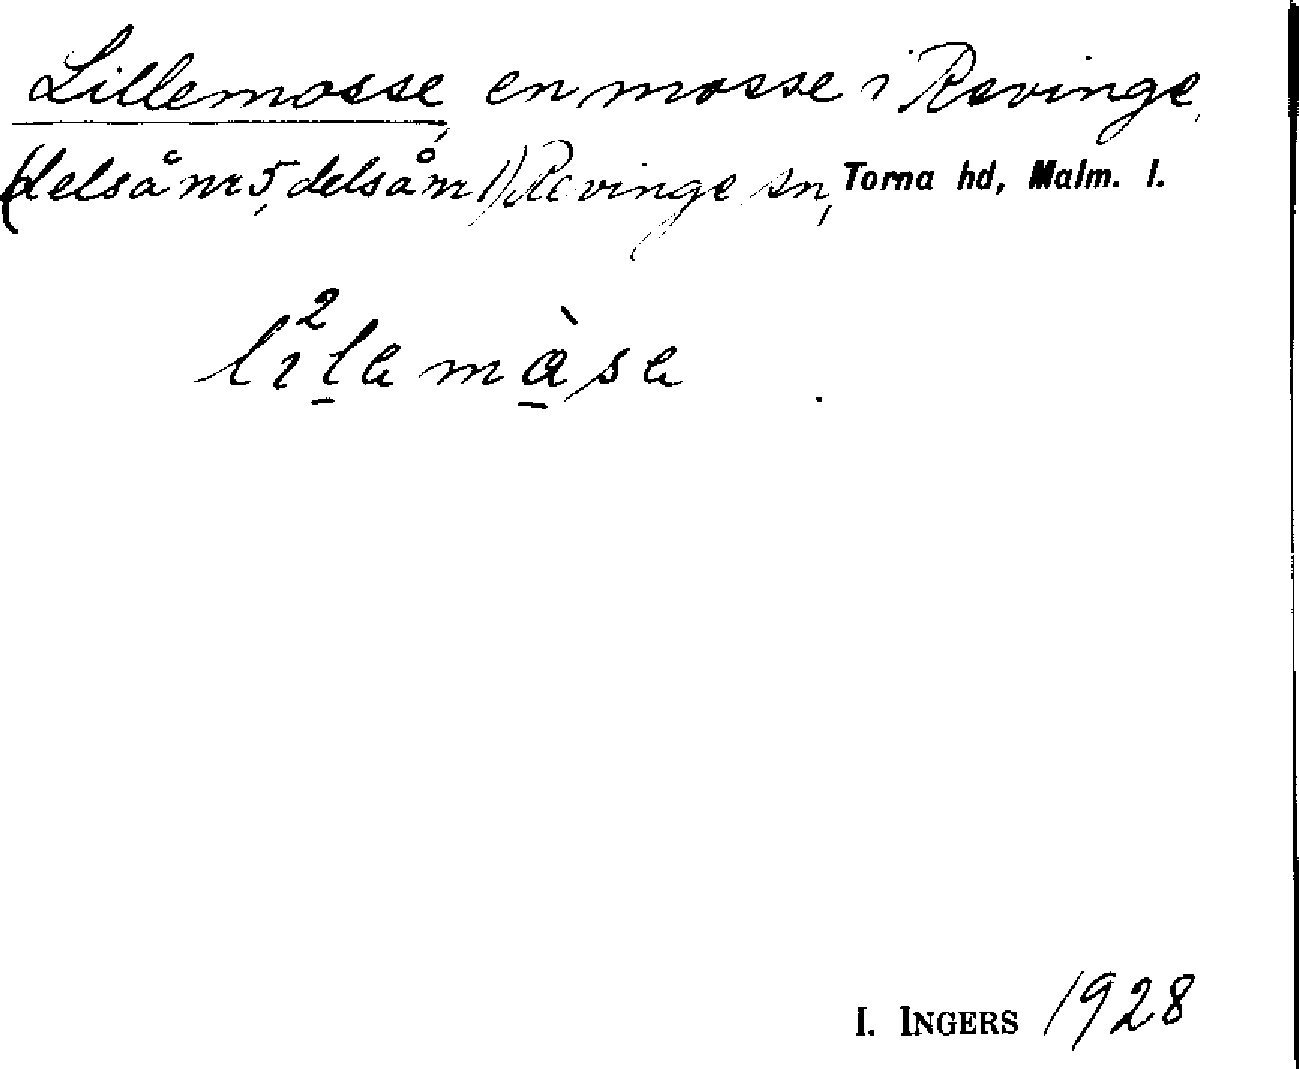 Lillemosse, en mosse i Revinge,
(delså nr 5, delså nr 1) Revinge sn, Torna hd, Malm. l.
li²le màse
I. INGERS 1928